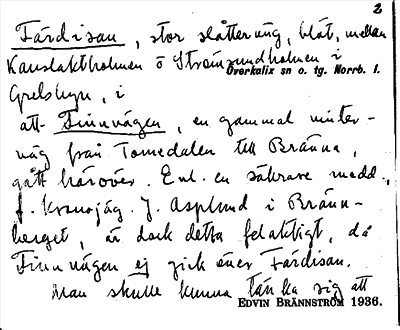 2
Färdisan, stor slåtteräng, blöt, mellan
Kanslaktholmen o Strömsundholmen i
Överkalix sn o. tg. Norrb. l.
Grelsbyn, i
att Finnvägen, en gammal vinter-
väg från Tornedalen till Bränna,
gått häröver. Enl. en säkrare medd.,
f. kronojäg. J. Asplund i Bränn-
berget, är dock detta felaktigt, då
Finnvägen ej gick över Färdisan.
Man skulle kunna tänka sig att
EDVIN BRÄNNSTRÖM 1936.